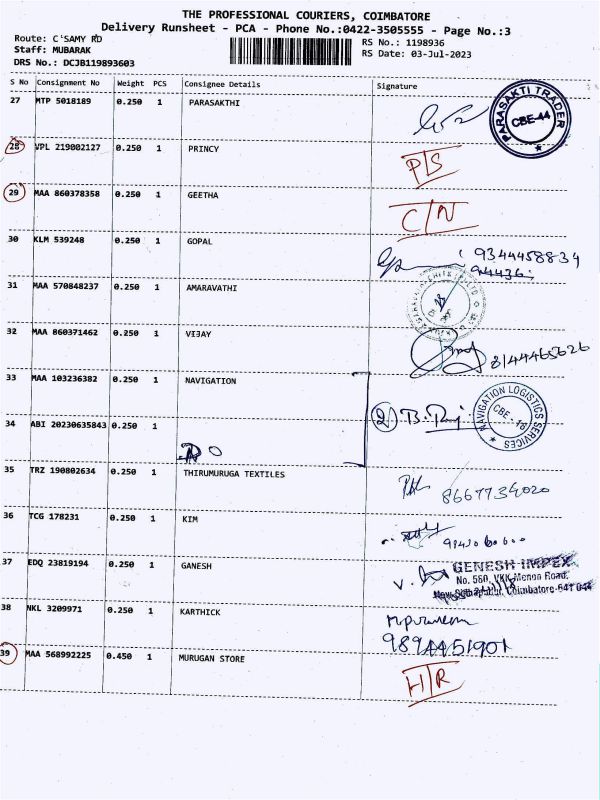 THE PROFESSIONAL COURIERS, COIMBATORE
Delivery Runsheet - PCA - Phone No.:0422-3505555 - Page No.:3
Route: C'SAMY RD
RS No.: 1198936
Staff: MUBARAK
RS Date: 03-Jul-2023
DRS No.: DCJB119893603
S No Consignment No Weight PCS Consignee Details Signature
27 MTP 5018189 0.250 1 PARASAKTHI
PARASAKTI TRADER
CBE-44
28 VPL 219002127 0.250 1 PRINCY P/S
29 MAA 860378358 0.250 1 GEETHA C/N
30 KLM 539248 0.250 1 GOPAL 9344458834
31 MAA 570848237 0.250 1 AMARAVATHI
32 MAA 860371462 0.250 1 VIJAY 8144465626
33 MAA 103236382 0.250 1 NAVIGATION
② B. Raj
NAVIGATION LOGISTICS SERVICES
CBE - 18
34 ABI 20230635843 0.250 1
35 TRZ 190802634 0.250 1 THIRUMURUGA TEXTILES 8667734020
36 TCG 178231 0.250 1 KIM
37 EDQ 23819194 0.250 1 GANESH
GENESH IMPEX
No. 560, VKK Menon Road,
New Siddhapudur, Coimbatore-641 044
38 NKL 3209971 0.250 1 KARTHICK
9894451901
39 MAA 568992225 0.450 1 MURUGAN STORE H/R